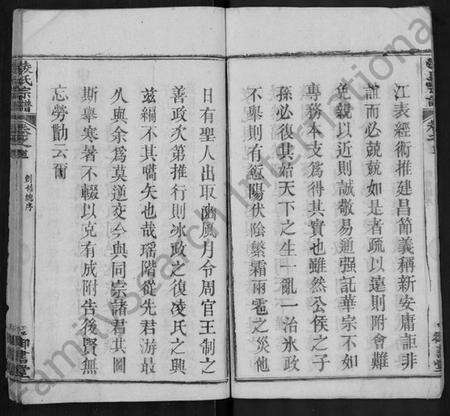 江表經術推建昌節義稱新安庸詎非
誰而必兢兢如是者疏以遠則附會難
免親以近則誠敬易通強証華宗不如
專務本支爲得其實也雖然公侯之子
孫必復其始天下之生一亂一治氷政
不舉則有愆陽伏陰繁霜雨雹之災他
日有聖人出取豳風月令周官王制之
善政次第推行則氷政之復凌氏之興
茲編不其嚆矢也哉瑶階從先君游最
久與余爲莫逆交今與同宗諸君其圖
斯舉寒暑不輟以克有成附告後賢無
忘勞勩云爾
凌氏宗譜
卷之首
創刊總序
御書堂
FamilySearch International